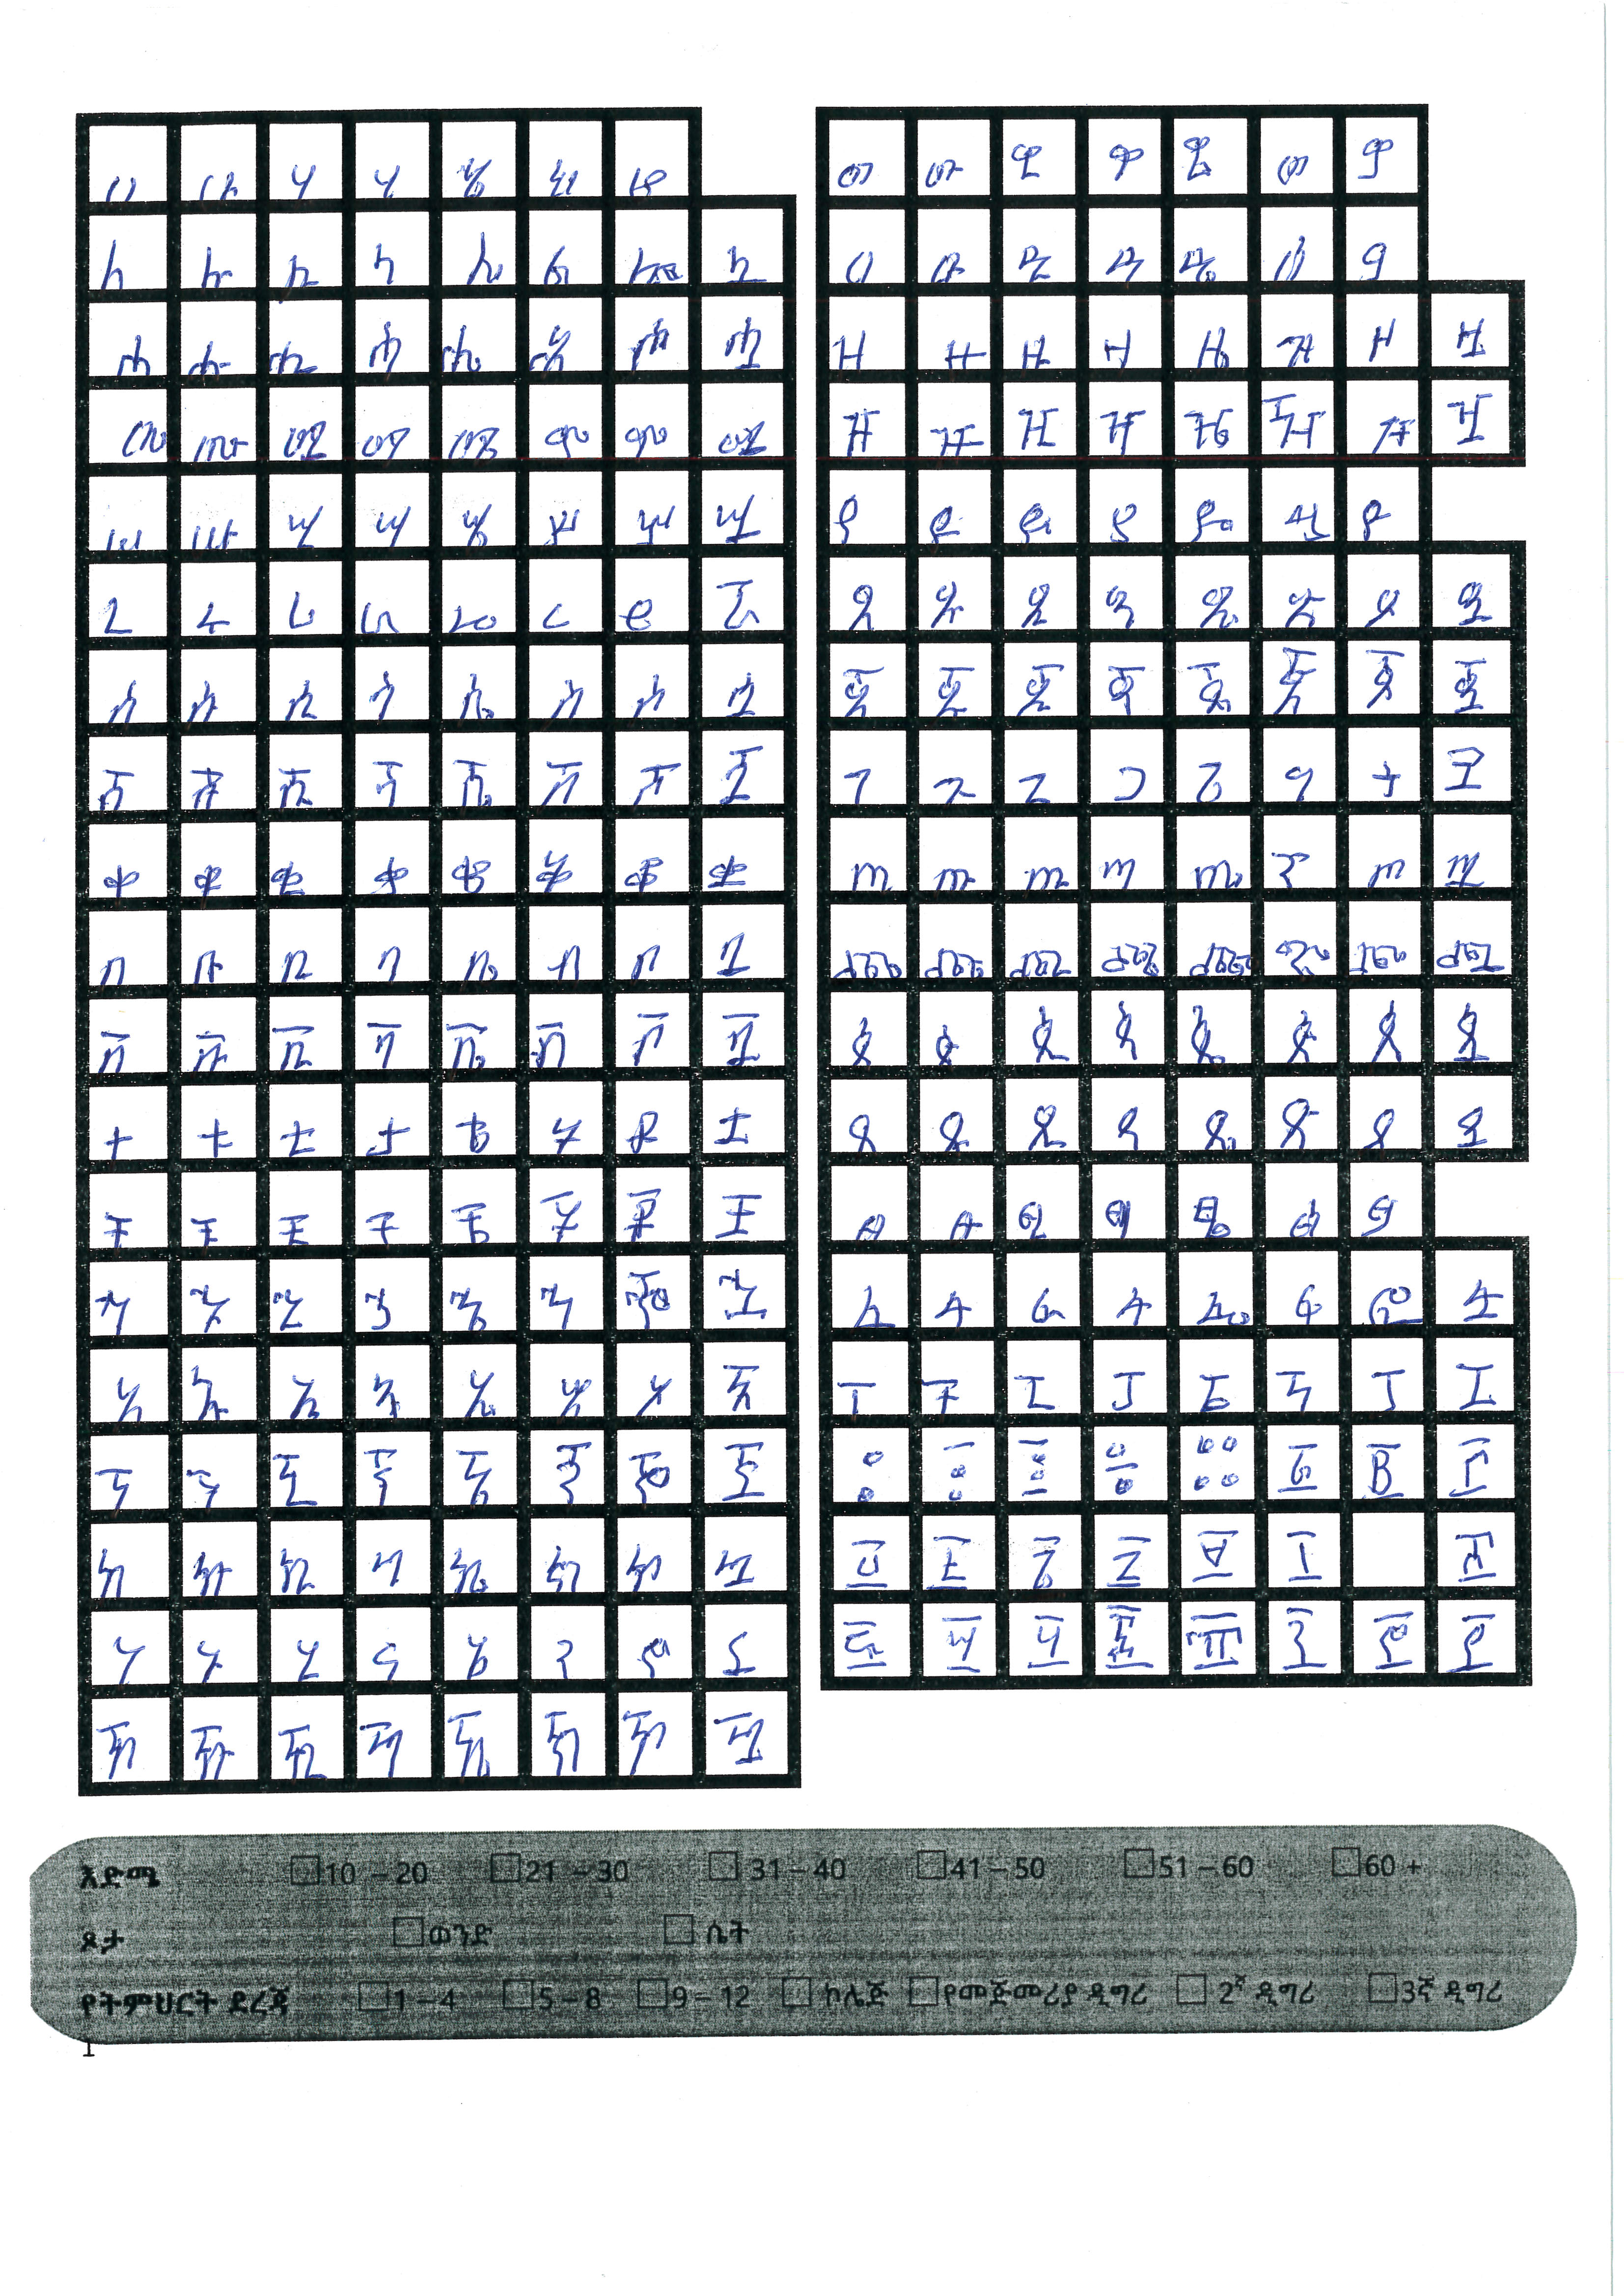 ሀ ሁ ሂ ሃ ሄ ህ ሆ
ለ ሉ ሊ ላ ሌ ል ሎ ሏ
ሐ ሑ ሒ ሓ ሔ ሕ ሖ ሗ
መ ሙ ሚ ማ ሜ ም ሞ ሟ
ሠ ሡ ሢ ሣ ሤ ሥ ሦ ሧ
ረ ሩ ሪ ራ ሬ ር ሮ ሯ
ሰ ሱ ሲ ሳ ሴ ስ ሶ ሷ
ሸ ሹ ሺ ሻ ሼ ሽ ሾ ሿ
ቀ ቁ ቂ ቃ ቄ ቅ ቆ ቋ
በ ቡ ቢ ባ ቤ ብ ቦ ቧ
ቨ ቩ ቪ ቫ ቬ ቭ ቮ ቯ
ተ ቱ ቲ ታ ቴ ት ቶ ቷ
ቸ ቹ ቺ ቻ ቼ ች ቾ ቿ
ኀ ኁ ኂ ኃ ኄ ኅ ኆ ኋ
ነ ኑ ኒ ና ኔ ን ኖ ኗ
ኘ ኙ ኚ ኛ ኜ ኝ ኞ ኟ
አ ኡ ኢ ኣ ኤ እ ኦ ኧ
ከ ኩ ኪ ካ ኬ ክ ኮ ኳ
ኸ ኹ ኺ ኻ ኼ ኽ ኾ
ወ ዉ ዊ ዋ ዌ ው ዎ
ዐ ዑ ዒ ዓ ዔ ዕ ዖ
ዘ ዙ ዚ ዛ ዜ ዝ ዞ ዟ
ዠ ዡ ዢ ዣ ዤ ዥ ዦ ዧ
የ ዩ ዪ ያ ዬ ይ ዮ
ደ ዱ ዲ ዳ ዴ ድ ዶ ዷ
ጀ ጁ ጂ ጃ ጄ ጅ ጆ ጇ
ገ ጉ ጊ ጋ ጌ ግ ጎ ጓ
ጠ ጡ ጢ ጣ ጤ ጥ ጦ ጧ
ጨ ጩ ጪ ጫ ጬ ጭ ጮ ጯ
ጰ ጱ ጲ ጳ ጴ ጵ ጶ ጷ
ጸ ጹ ጺ ጻ ጼ ጽ ጾ ጿ
ፀ ፁ ፂ ፃ ፄ ፅ ፆ
ፈ ፉ ፊ ፋ ፌ ፍ ፎ ፏ
ፐ ፑ ፒ ፓ ፔ ፕ ፖ ፗ
እድሜ 10 – 20 21 – 30 31 – 40 41 – 50 51 – 60 60 +
ጾታ ወንድ ሴት
የትምህርት ደረጃ 1 – 4 5 – 8 9 – 12 ኮሌጅ የመጀመሪያ ዲግሪ 2ኛ ዲግሪ 3ኛ ዲግሪ
1